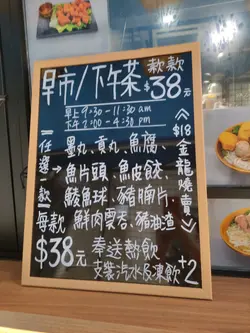 早市/下午茶 款款$38元
早上9:30-11:30am
下午2:00-4:30pm
任選一款→
墨丸、貢丸、魚腐、
魚片頭、魚皮餃、
鯪魚球、豬腩片、
鮮肉雲吞、豬油渣
每款$38元
奉送熱飲
支裝汽水及凍飲+2
《$18金龍燒賣》